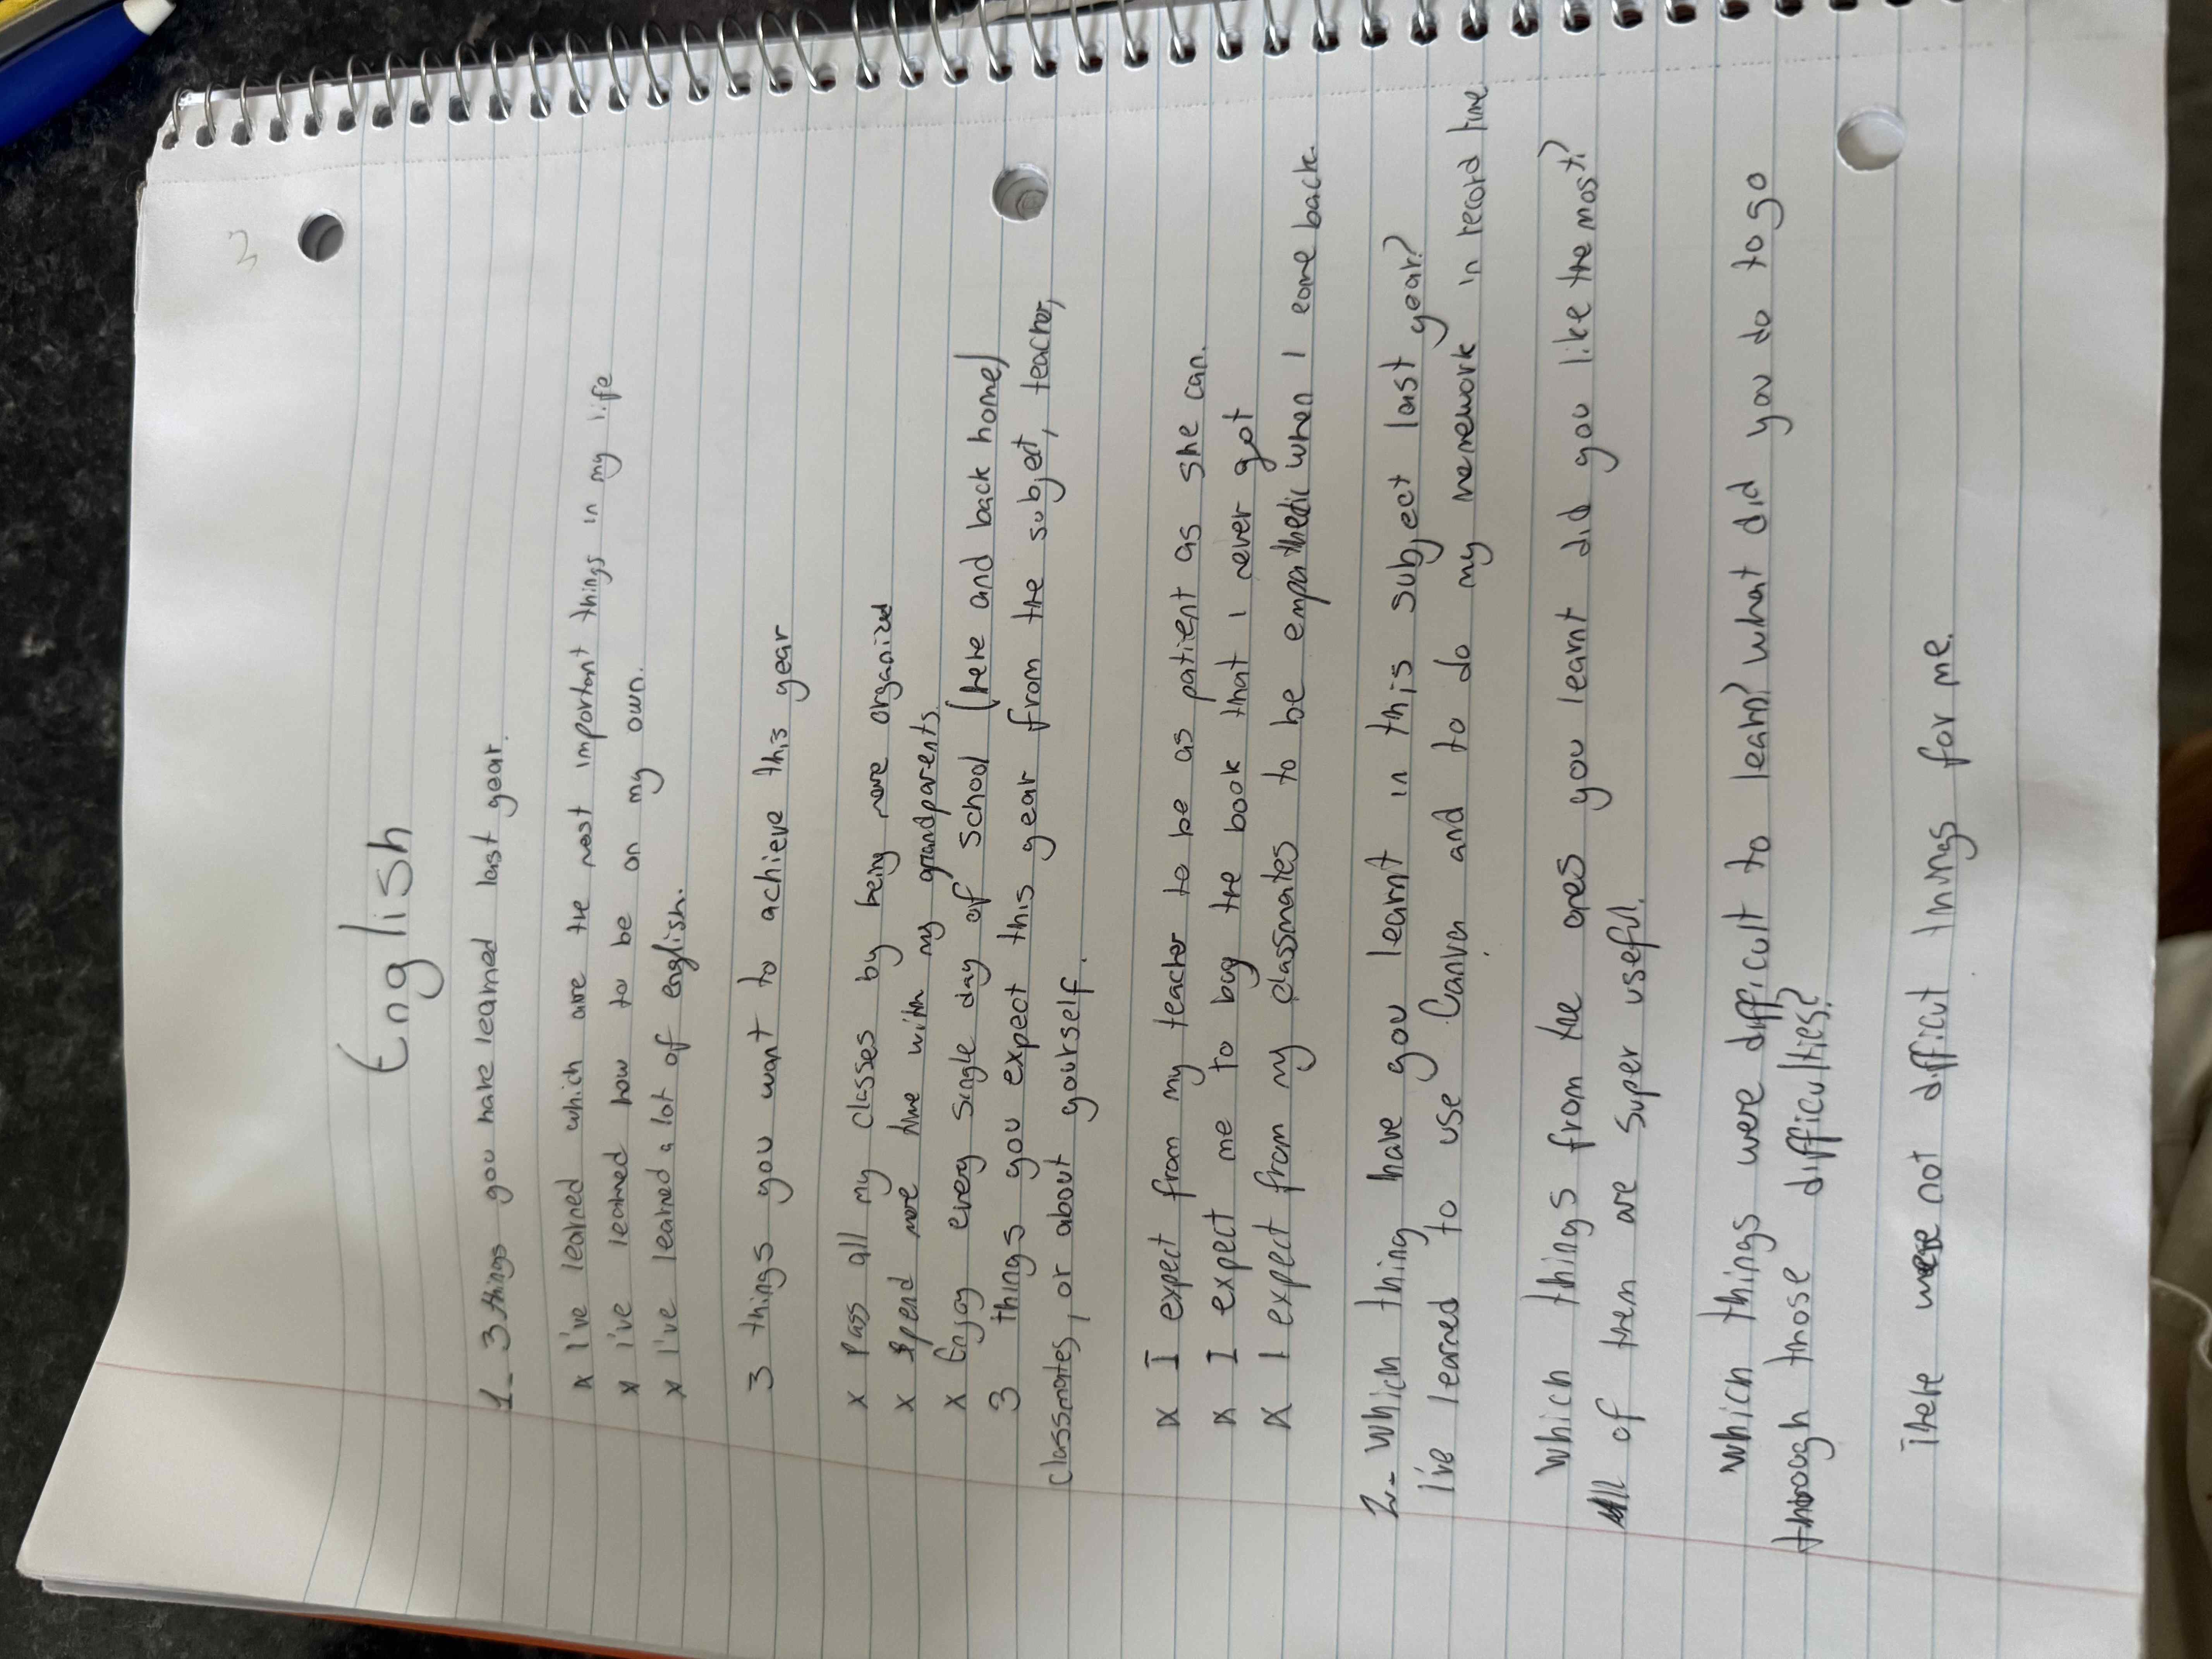 English
1- 3 things you have learned last year.
x I've learned which are the most important things in my life
x i've learned how to be on my own.
x I've learned a lot of english.
3 things you want to achieve this year
x Pass all my classes by being more organized
x Spend more time with my grandparents.
x Enjoy every single day of school (here and back home)
3 things you expect this year from the subject, teacher,
classmates, or about yourself.
x I expect from my teacher to be as patient as she can.
x I expect me to buy the book that i never got
x I expect from my classmates to be empathedic when I come back.
2- Which thing have you learnt in this subject last year?
I've learned to use Canva and to do my homework in record time.
Which things from the ones you learnt did you like the most?
All of them are super useful.
Which things were difficult to learn? what did you do to go
through those difficulties?
There were not difficut things for me.